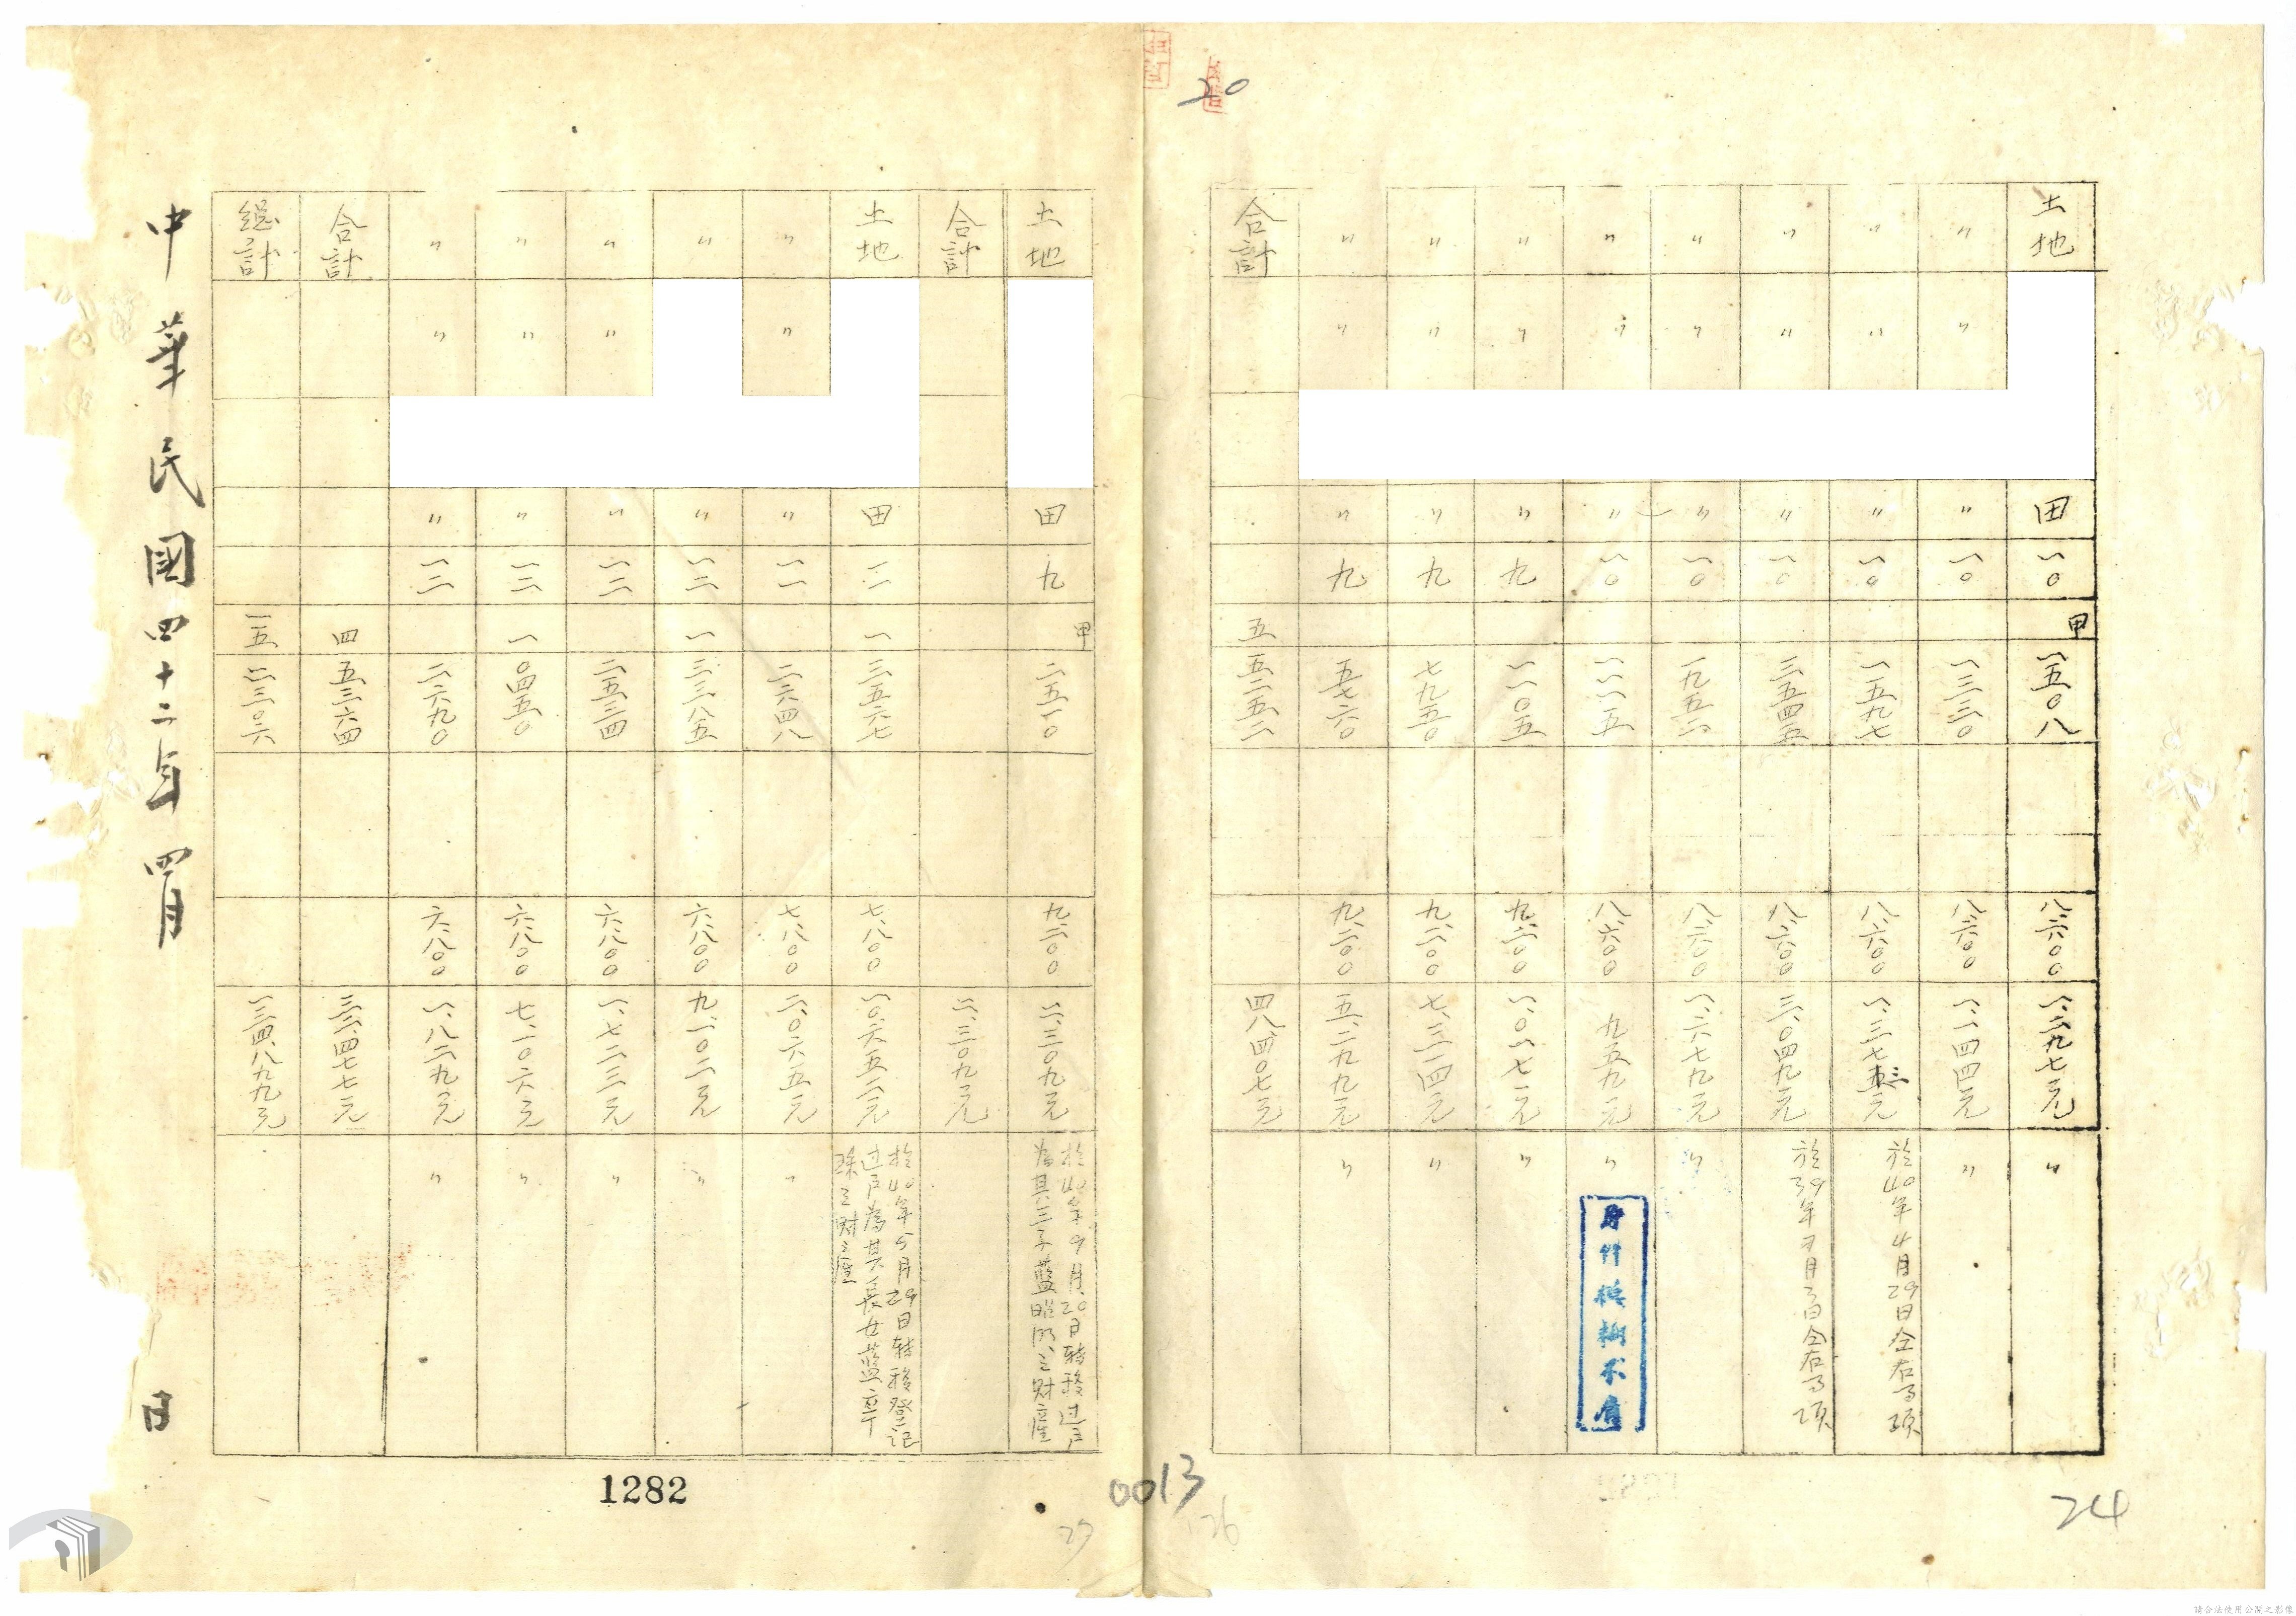 20
土地 田 一〇 甲 一五〇八 八六〇〇 一、二九七元 〃
〃 〃 〃 一〇 一三三〇 八六〇〇 一、一四四元 〃
〃 〃 〃 一〇 一五九七 八六〇〇 一、三七三元 於40年4月29日仝右 項
〃 〃 〃 一〇 三五四五 八六〇〇 三、〇四九元 於39年7月3日仝右 項
〃 〃 〃 一〇 一九五二 八六〇〇 一、六七九元 〃
〃 〃 〃 一〇 一一一五 八六〇〇 九五九元 〃
件模糊
〃 〃 〃 九 一一〇五 九二〇〇 一、〇一七元 〃
〃 〃 〃 九 七九五〇 九二〇〇 七、三一四元 〃
〃 〃 〃 九 五七六〇 九二〇〇 五、二九九元 〃
合計 五 五二五二 四八、四〇七元
24
126
0013
土地 田 九 甲 二五一〇 九二〇〇 二、三〇九元 於40年9月20日轉移过户
為其三子藍昭明之財產
合計 二、三〇九元
土地 田 一一 一 三五六七 七八〇〇 一〇、六五二元 於40年5月29日轉移登記
过户為其長女藍
之財產
〃 〃 〃 一一 二六四八 七八〇〇 二、〇六五元 〃
〃 〃 一二 一 三三八五 六八〇〇 九、一〇二元 〃
〃 〃 〃 一二 二五三四 六八〇〇 一、七二三元 〃
〃 〃 〃 一二 一 〇四五〇 六八〇〇 七、一〇六元 〃
〃 〃 〃 一二 二六九〇 六八〇〇 一、八二九元 〃
合計 四 五三六四 三二、四七七元
總計 一五 二三〇六 一三四、八九九元
中華民國四十二年四月 日
1282
請合法使用公開之影像